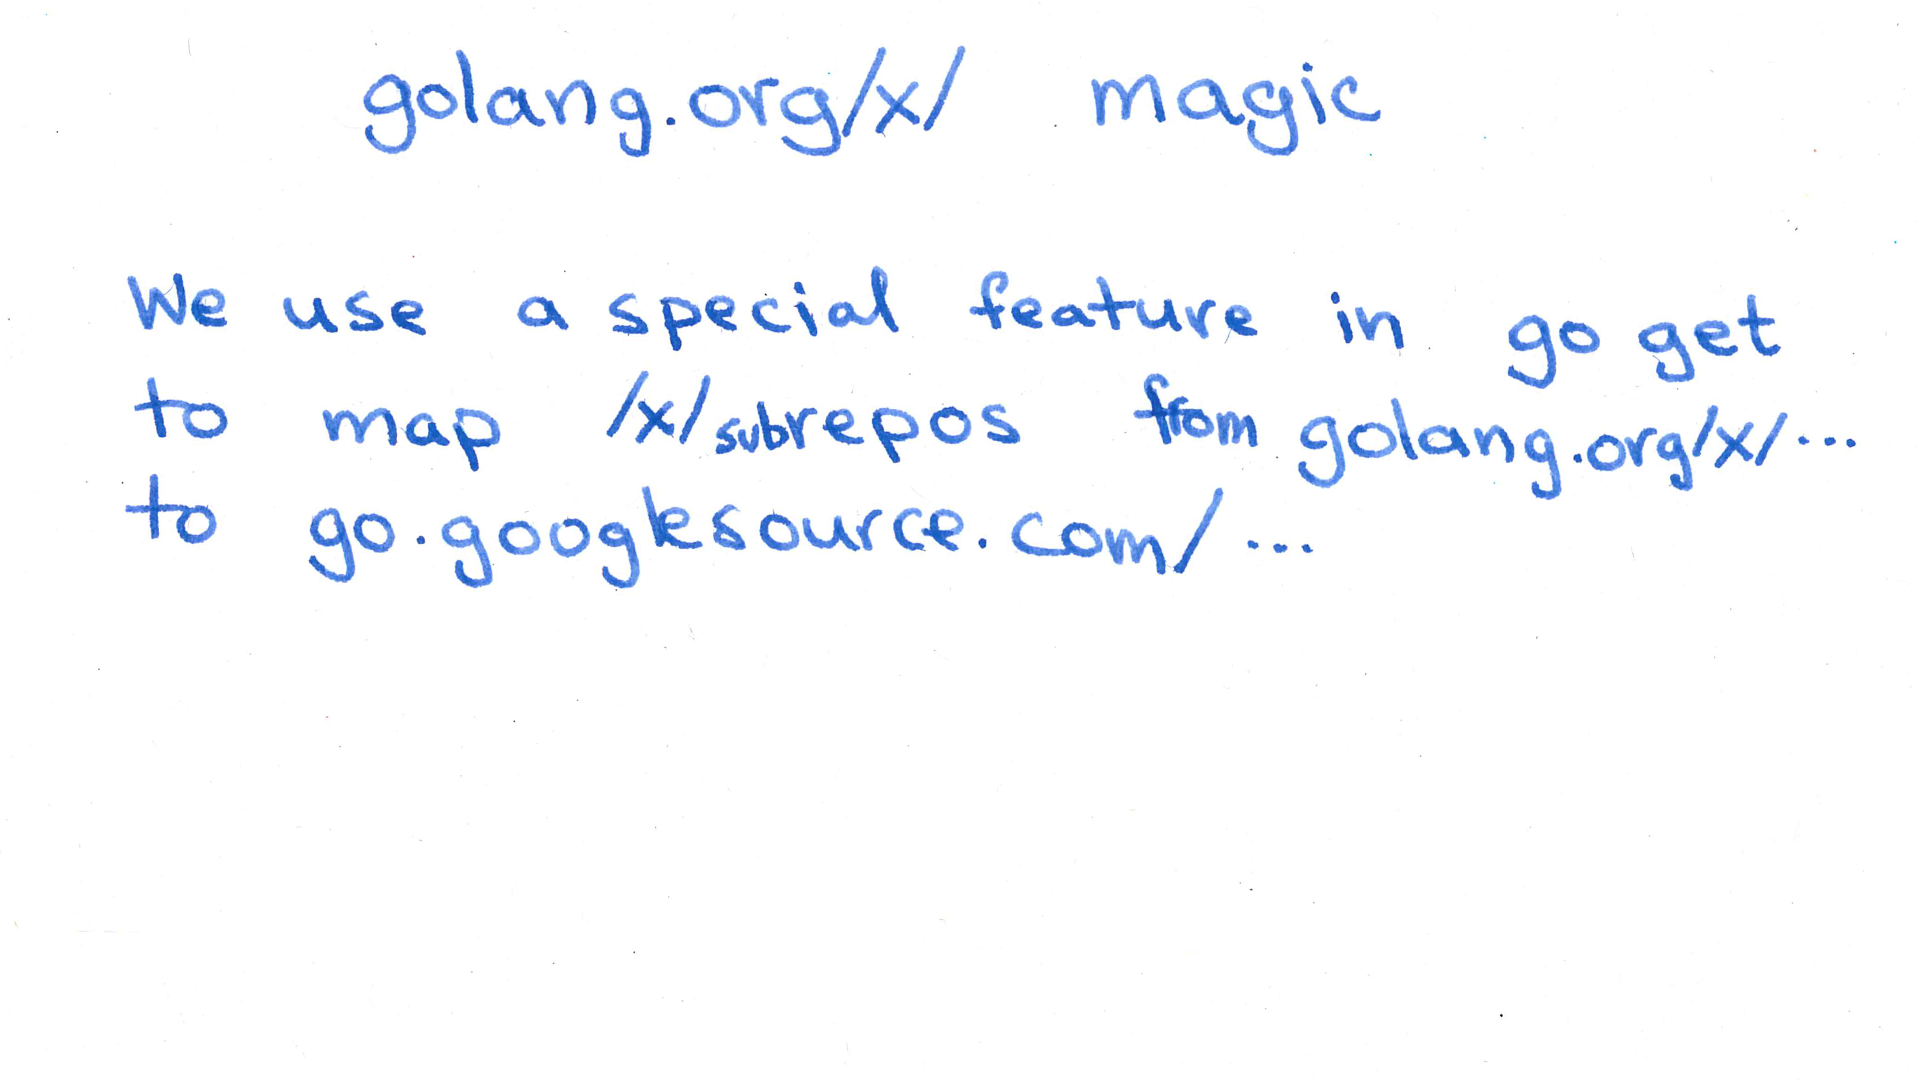 golang.org/x/ magic
We use a special feature in go get
to map /x/subrepos from golang.org/x/...
to go.googlesource.com/...